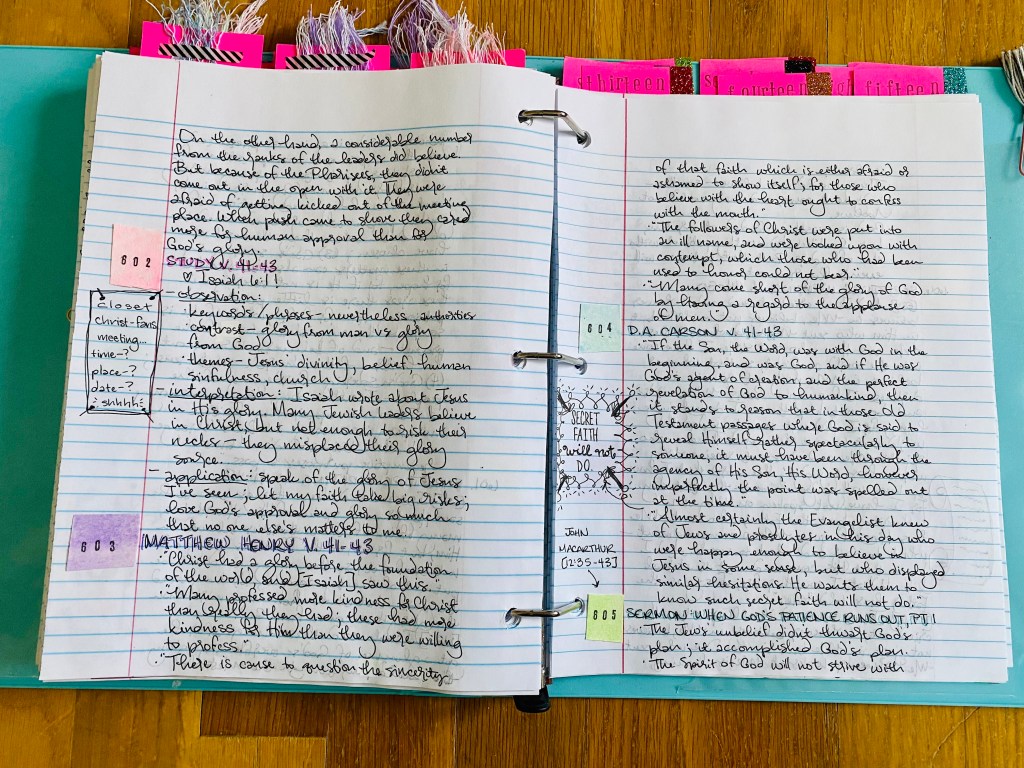 thirteen
fourteen
fifteen
On the other hand, a considerable number
from the ranks of the leaders did believe.
But because of the Pharisees, they didn't
come out in the open with it. They were
afraid of getting kicked out of the meeting
place. When push came to shove they cared
more for human approval than for
God's glory.
602
STUDY V. 41-43
♡ Isaiah 6:1!
- observation:
• keywords/phrases - nevertheless, authorities
• contrast - glory from man vs glory
from God
• themes - Jesus' divinity, belief, human
sinfulness, church
closet
Christ-fans
meeting...
time-?
place-?
date-?
¡shhhh!
- interpretation: Isaiah wrote about Jesus
in His glory. Many Jewish leaders believe
in Christ, but not enough to risk their
necks - they misplaced their glory
source.
- application: speak of the glory of Jesus
I've seen; let my faith take big risks;
love God's approval and glory so much
that no one else's matters to me.
603
MATTHEW HENRY V. 41-43
• "Christ had a glory before the foundation
of the world, and [Isaiah] saw this."
• "Many professed more kindness for Christ
than really they had; these had more
kindness for Him than they were willing
to profess."
• "There is cause to question the sincerity
of that faith which is either afraid or
ashamed to show itself; for those who
believe with the heart ought to confess
with the mouth."
• "The followers of Christ were put into
an ill name, and were looked upon with
contempt, which those who had been
used to honor could not bear."
• "Many come short of the glory of God
by having a regard to the applause
of men."
604
D.A. CARSON V. 41-43
• "If the Son, the Word, was with God in the
beginning, and was God, and if He was
God's agent of creation, and the perfect
revelation of God to humankind, then
it stands to reason that in those Old
Testament passages where God is said to
reveal Himself rather spectacularly to
someone, it must have been through the
agency of His Son, His Word, however
imperfectly the point was spelled out
at the time."
SECRET
FAITH
will not
DO.
• "Almost certainly the Evangelist knew
of Jews and proselytes in this day who
were happy enough to believe in
Jesus in some sense, but who displayed
similar hesitations. He wants them to
know such secret faith will not do."
JOHN
MACARTHUR
[12:35-43]
605
SERMON: WHEN GOD'S PATIENCE RUNS OUT, PT. 1
• The Jews' unbelief didn't thwart God's
plan; it accomplished God's plan.
• The Spirit of God will not strive with